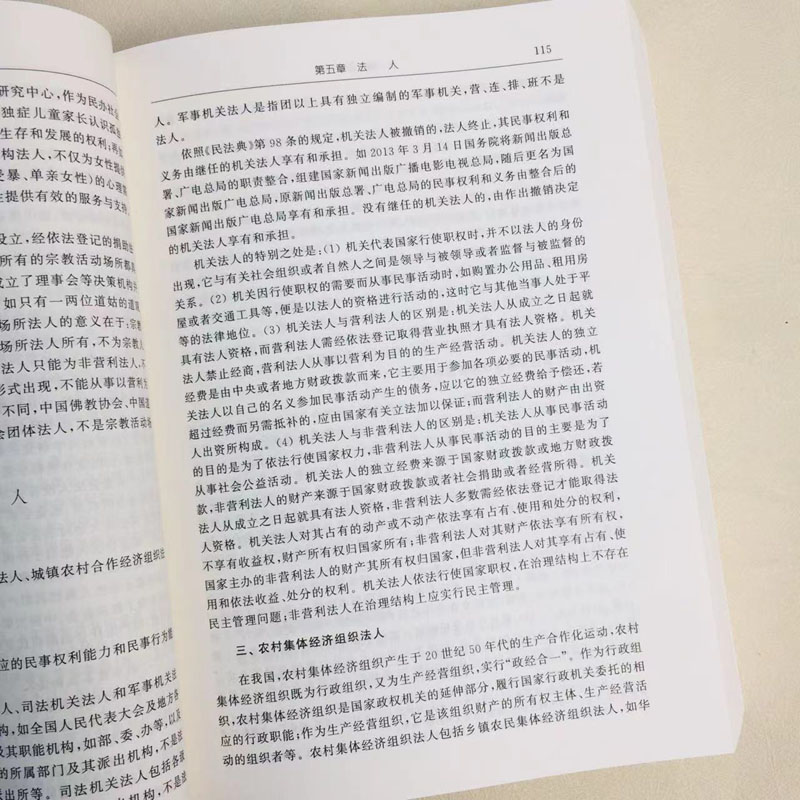 研究中心,作为民办社会
独症儿童家长认识孤
生存和发展的权利;再
构法人,不仅为女性提
受暴、单亲女性)的心理
性提供有效的服务与支持
设立,经依法登记的捐助
所有的宗教活动场所都
成立了理事会等决策机构
如只有一两位道姑的道观
场所法人的意义在于:宗教
场所法人所有,不为宗教人
法人只能为非营利法人,不
形式出现,不能从事以营利为
不同,中国佛教协会、中国道
会团体法人,不是宗教活动场
人
法人、城镇农村合作经济组织法
应的民事权利能力和民事行为能
人、司法机关法人和军事机关法
构,如全国人民代表大会及地方各
及其职能机构,如部、委、办等,以及
的所属部门及其派出机构,不是法
派出所等。司法机关法人包括各级
出机构,不是法
第五章 法 人
115
人。军事机关法人是指团以上具有独立编制的军事机关,营、连、排、班不是
法人。
依照《民法典》第 98 条的规定,机关法人被撤销的,法人终止,其民事权利和
义务由继任的机关法人享有和承担。如 2013 年 3 月 14 日国务院将新闻出版总
署、广电总局的职责整合,组建国家新闻出版广播电影电视总局,随后更名为国
家新闻出版广电总局,原新闻出版总署、广电总局的民事权利和义务由整合后的
国家新闻出版广电总局享有和承担。没有继任的机关法人的,由作出撤销决定
的机关法人享有和承担。
机关法人的特别之处是:(1) 机关代表国家行使职权时,并不以法人的身份
出现,它与有关社会组织或者自然人之间是领导与被领导或者监督与被监督的
关系。(2) 机关因行使职权的需要而从事民事活动时,如购置办公用品、租用房
屋或者交通工具等,便是以法人的资格进行活动的,这时它与其他当事人处于平
等的法律地位。(3) 机关法人与营利法人的区别是:机关法人从成立之日起就
具有法人资格,而营利法人需经依法登记取得营业执照才具有法人资格。机关
法人禁止经商,营利法人从事以营利为目的的生产经营活动。机关法人的独立
经费是由中央或者地方财政拨款而来,它主要用于参加各项必要的民事活动,机
关法人以自己的名义参加民事活动产生的债务,应以它的独立经费给予偿还,若
超过经费而另需抵补的,应由国家有关立法加以保证;而营利法人的财产由出资
人出资所构成。(4) 机关法人与非营利法人的区别是:机关法人从事民事活动
的目的是为了依法行使国家权力,非营利法人从事民事活动的目的主要是为了
从事社会公益活动。机关法人的独立经费来源于国家财政拨款或地方财政拨
款,非营利法人的财产来源于国家财政拨款或者社会捐助或者经营所得。机关
法人从成立之日起就具有法人资格,非营利法人多数需经依法登记才能取得法
人资格。机关法人对其占有的动产或不动产依法享有占有、使用和处分的权利,
不享有收益权,财产所有权归国家所有;非营利法人对其财产依法享有所有权,
国家主办的非营利法人的财产其所有权归国家,但非营利法人对其享有占有、使
用和依法收益、处分的权利。机关法人依法行使国家职权,在治理结构上不存在
民主管理问题;非营利法人在治理结构上应实行民主管理。
三、农村集体经济组织法人
在我国,农村集体经济组织产生于 20 世纪 50 年代的生产合作化运动,农村
集体经济组织既为行政组织,又为生产经营组织,实行“政经合一”。作为行政组
织,农村集体经济组织是国家政权机关的延伸部分,履行国家行政机关委托的相
应的行政职能;作为生产经营组织,它是该组织财产的所有权主体、生产经营活
动的组织者等。农村集体经济组织法人包括乡镇农民集体经济组织法人,如华